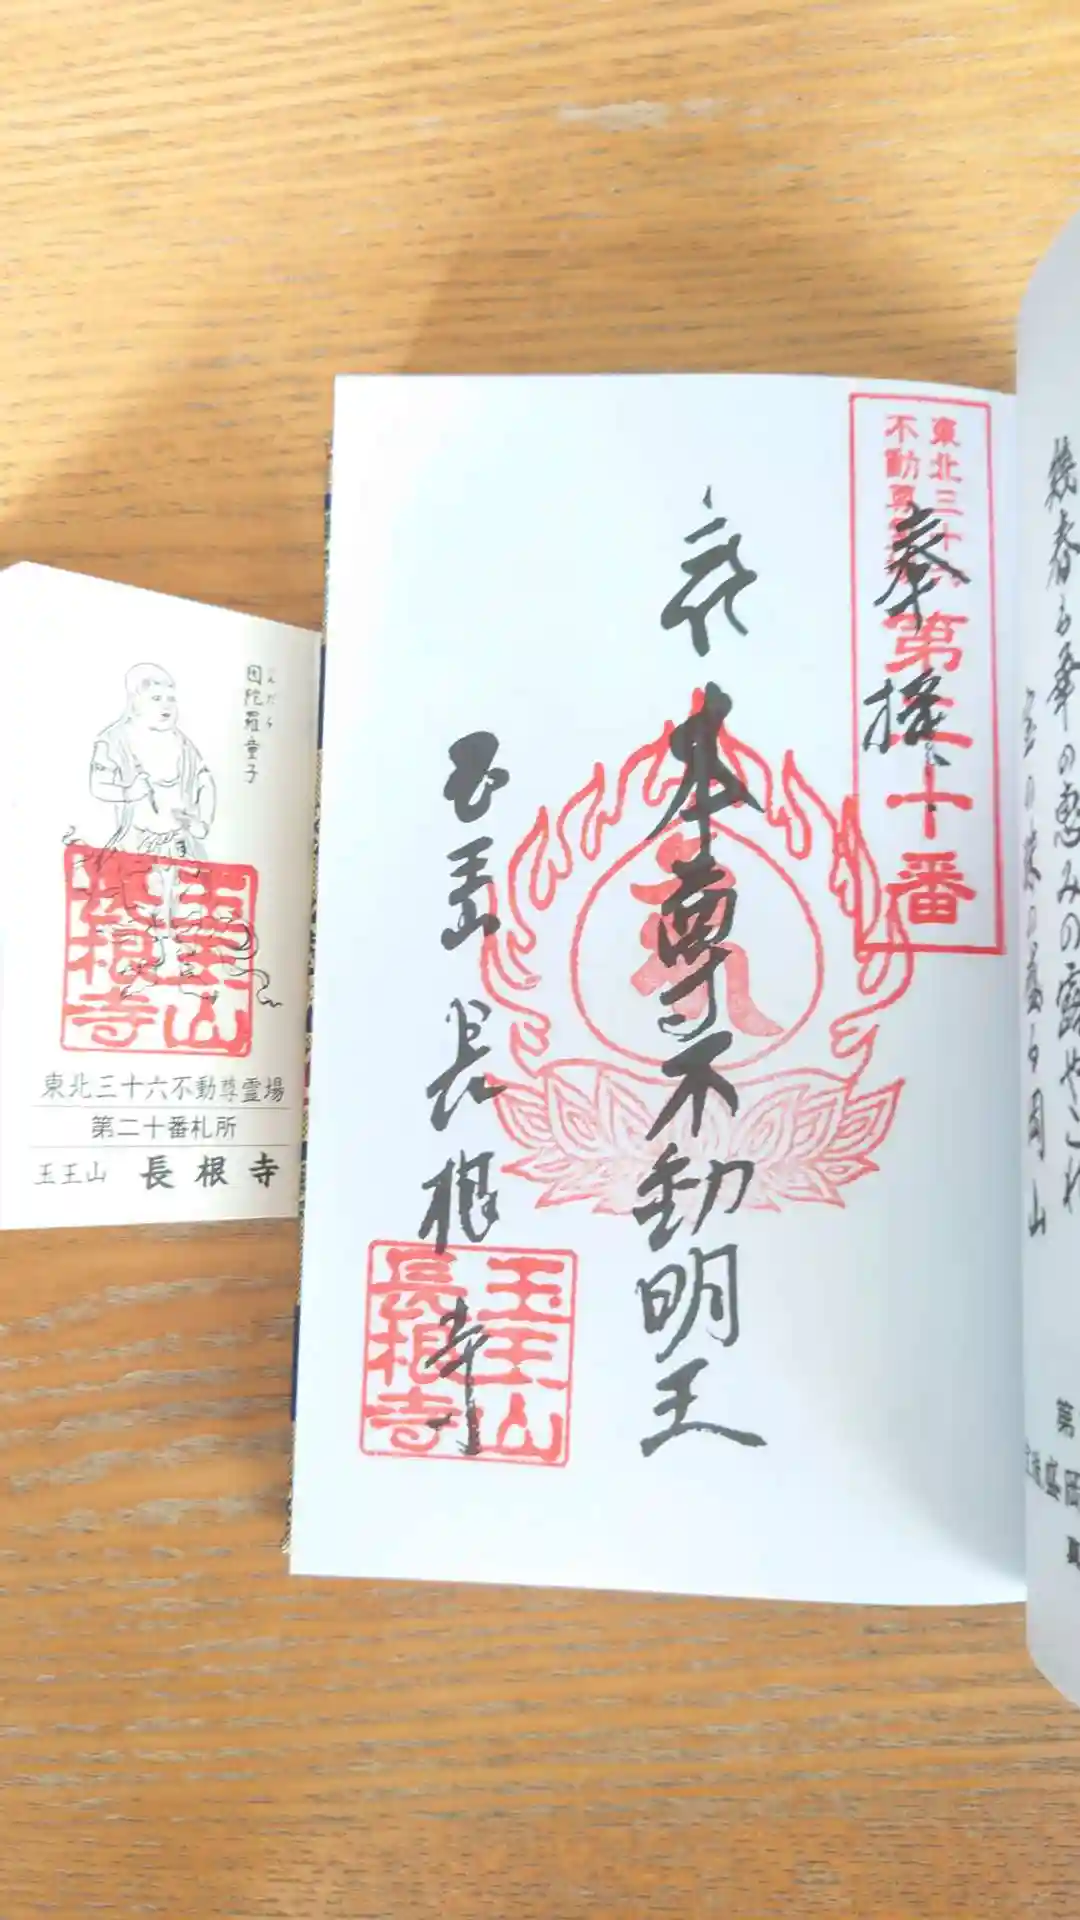 幾春も峯の恵みの露やこれ
岡山
第
盛岡
東北三十六
不動尊霊場
第二十番
奉拝
本尊不動明王
玉王山 長根寺
玉王山
長根寺
因陀羅童子
いんだら
玉王山
長根寺
東北三十六不動尊霊場
第二十番札所
玉王山 長根寺